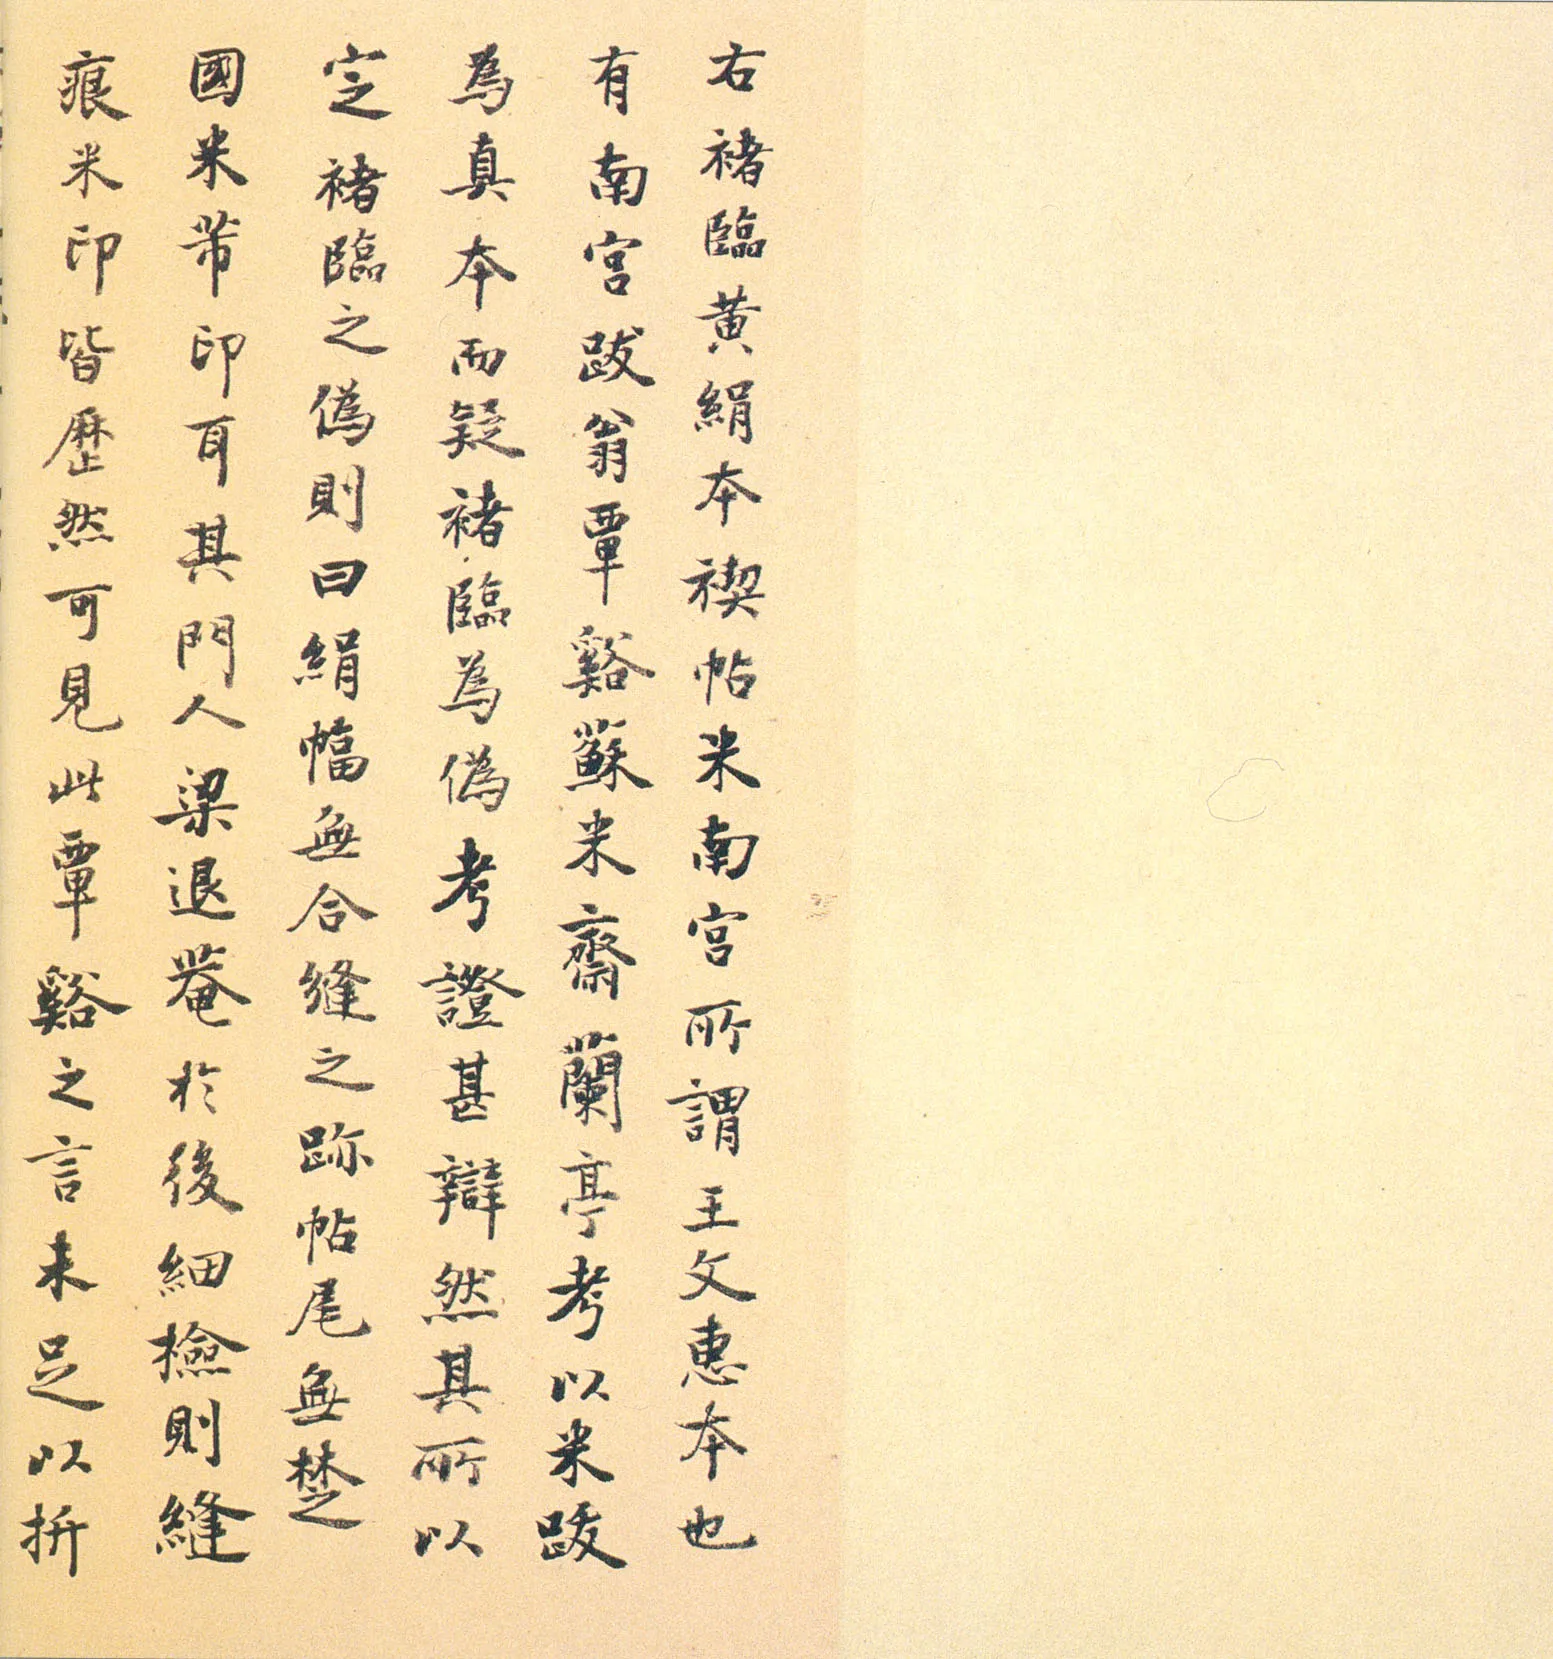 右褚臨黄絹本禊帖米南宮所謂王文惠本也
有南宮跋翁覃谿蘇米齋蘭亭考以米跋
為真本而疑褚臨為偽考證甚辯然其所以
定褚臨之偽則曰絹幅無合縫之跡帖尾無楚
國米芾印耳其門人梁退菴於後細檢則縫
痕米印皆歷然可見此覃谿之言未足以折